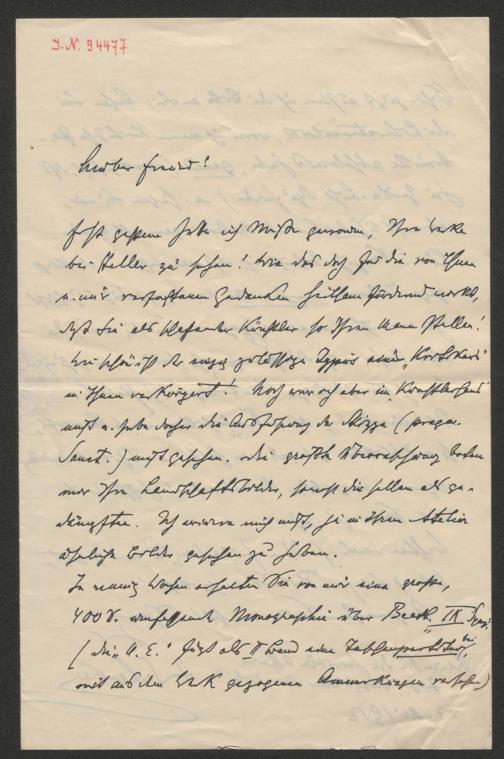 I.N. 94477
Lieber Freund!
Erst gestern hatte ich Muße gewonnen, Ihre Werke
bei Heller zu sehen! Wie das doch für die von Ihnen
u. mir verfochtenen Gedanken heilsam fördernd wirkt,
daß Sie als schaffender Künstler so Ihren Mann stellen!
Wie schön ist der einzig zulässige Typus eines
in Ihnen verkörpert! Noch war ich aber im Künstlerhaus
nicht u. habe daher die Ausführung der Skizze (
Sanct.) nicht gesehen. Die größte Überraschung boten
mir Ihre Landschaftsbilder, sowohl die hellen als ge-
dämpften. Ich erinnere mich nicht, je in Ihrem Atelier
ähnliche Bilder gesehen zu haben.
In wenig Wochen erhalten Sie von mir eine große,
400 S. umfassende Monographie über Beeth. IX Symf.
(die „U. E." fügt als II Band eine Taschenpartitur bei,
mit aus dem Werk gezogenen Anmerkungen versehen)